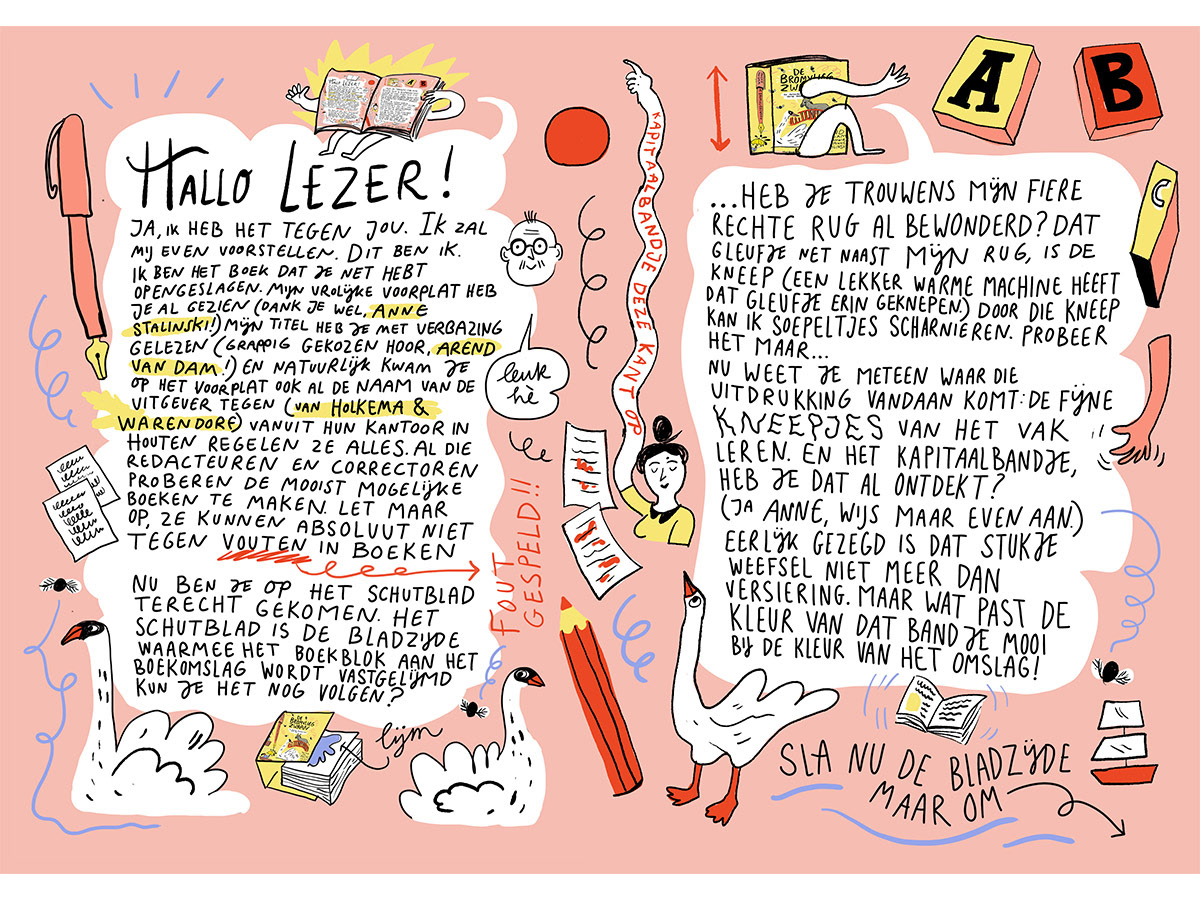 HALLO LEZER!
JA, IK HEB HET TEGEN JOU. IK ZAL
MY EVEN VOORSTELLEN. DIT BEN IK.
IK BEN HET BOEK DAT JE NET HEBT
OPENGESLAGEN. MIJN VROLIJKE VOORPLAT HEB
JE AL GEZIEN (DANK JE WEL, ANNE
STALINSKI!) MIJN TITEL HEB JE MET VERBAZING
GELEZEN (GRAPPIG GEKOZEN HOOR, AREND
VAN DAM!) EN NATUURLIJK KWAM JE
OP HET VOORPLAT OOK AL DE NAAM VAN DE
UITGEVER TEGEN (VAN HOLKEMA &
WARENDORF) VANUIT HUN KANTOOR IN
HOUTEN REGELEN ZE ALLES. AL DIE
REDACTEUREN EN CORRECTOREN
PROBEREN DE MOOIST MOGELIJKE
BOEKEN TE MAKEN. LET MAAR
OP, ZE KUNNEN ABSOLUUT NIET
TEGEN VOUTEN IN BOEKEN
NU BEN JE OP HET SCHUTBLAD
TERECHT GEKOMEN. HET
SCHUTBLAD IS DE BLADZIJDE
WAARMEE HET BOEKBLOK AAN HET
BOEKOMSLAG WORDT VASTGELIJMD
KUN JE HET NOG VOLGEN?
lijm
leuk
hè
FOUT
GESPELD!!
KAPITAALBANDJE DEZE KANT OP
DE
BROMVLIEG
ZWAAN
A
B
...HEB JE TROUWENS MIJN FIERE
RECHTE RUG AL BEWONDERD? DAT
GLEUFJE NET NAAST MIJN RUG, IS DE
KNEEP (EEN LEKKER WARME MACHINE HEEFT
DAT GLEUFJE ERIN GEKNEPEN.) DOOR DIE KNEEP
KAN IK SOEPELTJES SCHARNIEREN. PROBEER
HET MAAR...
NU WEET JE METEEN WAAR DIE
UITDRUKKING VANDAAN KOMT: DE FIJNE
KNEEPJES VAN HET VAK
LEREN. EN HET KAPITAALBANDJE,
HEB JE DAT AL ONTDEKT?
(JA ANNE, WIJS MAAR EVEN AAN.)
EERLIJK GEZEGD IS DAT STUKJE
WEEFSEL NIET MEER DAN
VERSIERING. MAAR WAT PAST DE
KLEUR VAN DAT BANDJE MOOI
BIJ DE KLEUR VAN HET OMSLAG!
SLA NU DE BLADZIJDE
MAAR OM